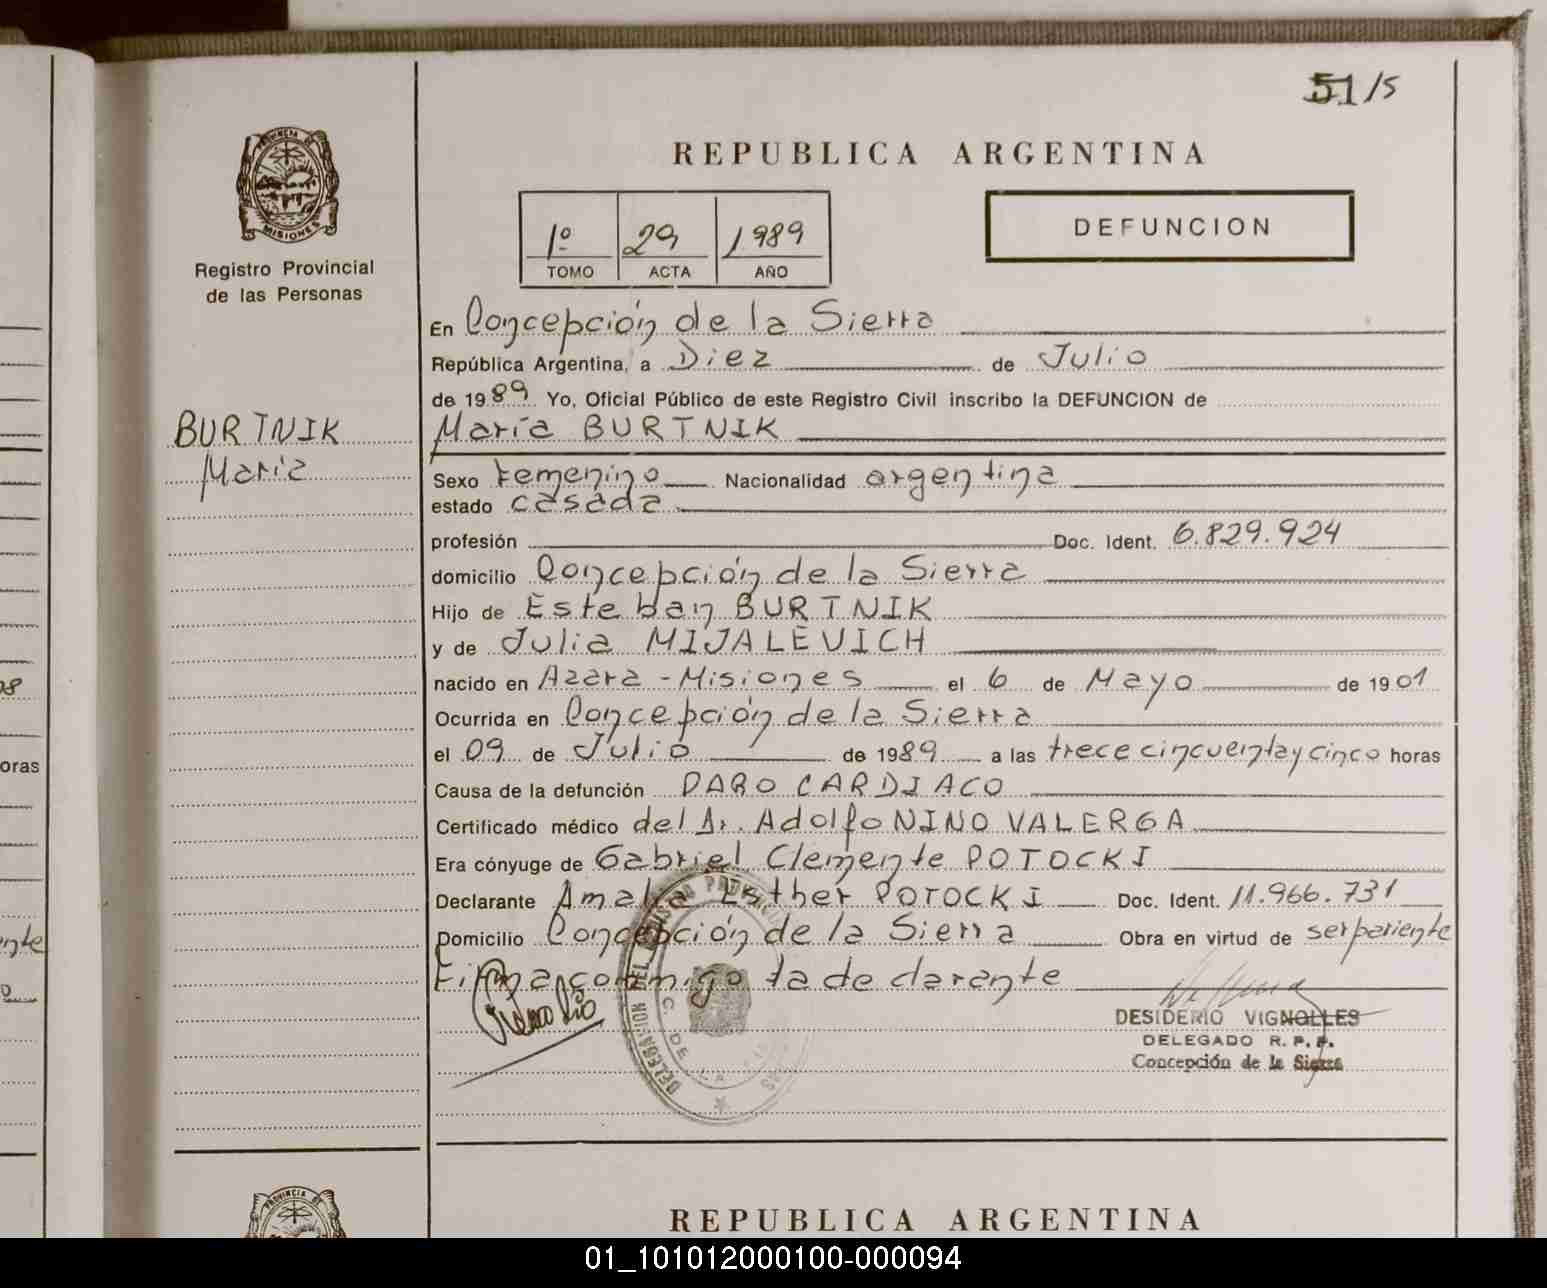 51/5
PROVINCIA DE
MISIONES
Registro Provincial
de las Personas
BURTNIK
María
REPUBLICA ARGENTINA
1º 29 1989
TOMO ACTA AÑO
DEFUNCION
En Concepción de la Sierra
República Argentina, a Diez de Julio
de 1989 Yo, Oficial Público de este Registro Civil inscribo la DEFUNCION de
María BURTNIK
Sexo femenino Nacionalidad argentina
estado casada
profesión Doc. Ident. 6.829.924
domicilio Concepción de la Sierra
Hijo de Esteban BURTNIK
y de Julia MIJALEVICH
nacido en Azara - Misiones el 6 de Mayo de 1901
Ocurrida en Concepción de la Sierra
el 09 de Julio de 1989 a las trece cincuenta y cinco horas
Causa de la defunción PARO CARDIACO
Certificado médico del Dr. Adolfo NINO VALERGA
Era cónyuge de Gabriel Clemente POTOCKI
Declarante Amalia Esther POTOCKI Doc. Ident. 11.966.731
Domicilio Concepción de la Sierra Obra en virtud de ser pariente
Firma conmigo la declarante
DESIDERIO VIGNOLLES
DELEGADO R. P. P.
Concepción de la Sierra
08
oras
ente
PROVINCIA DE
REPUBLICA ARGENTINA
01_101012000100-000094